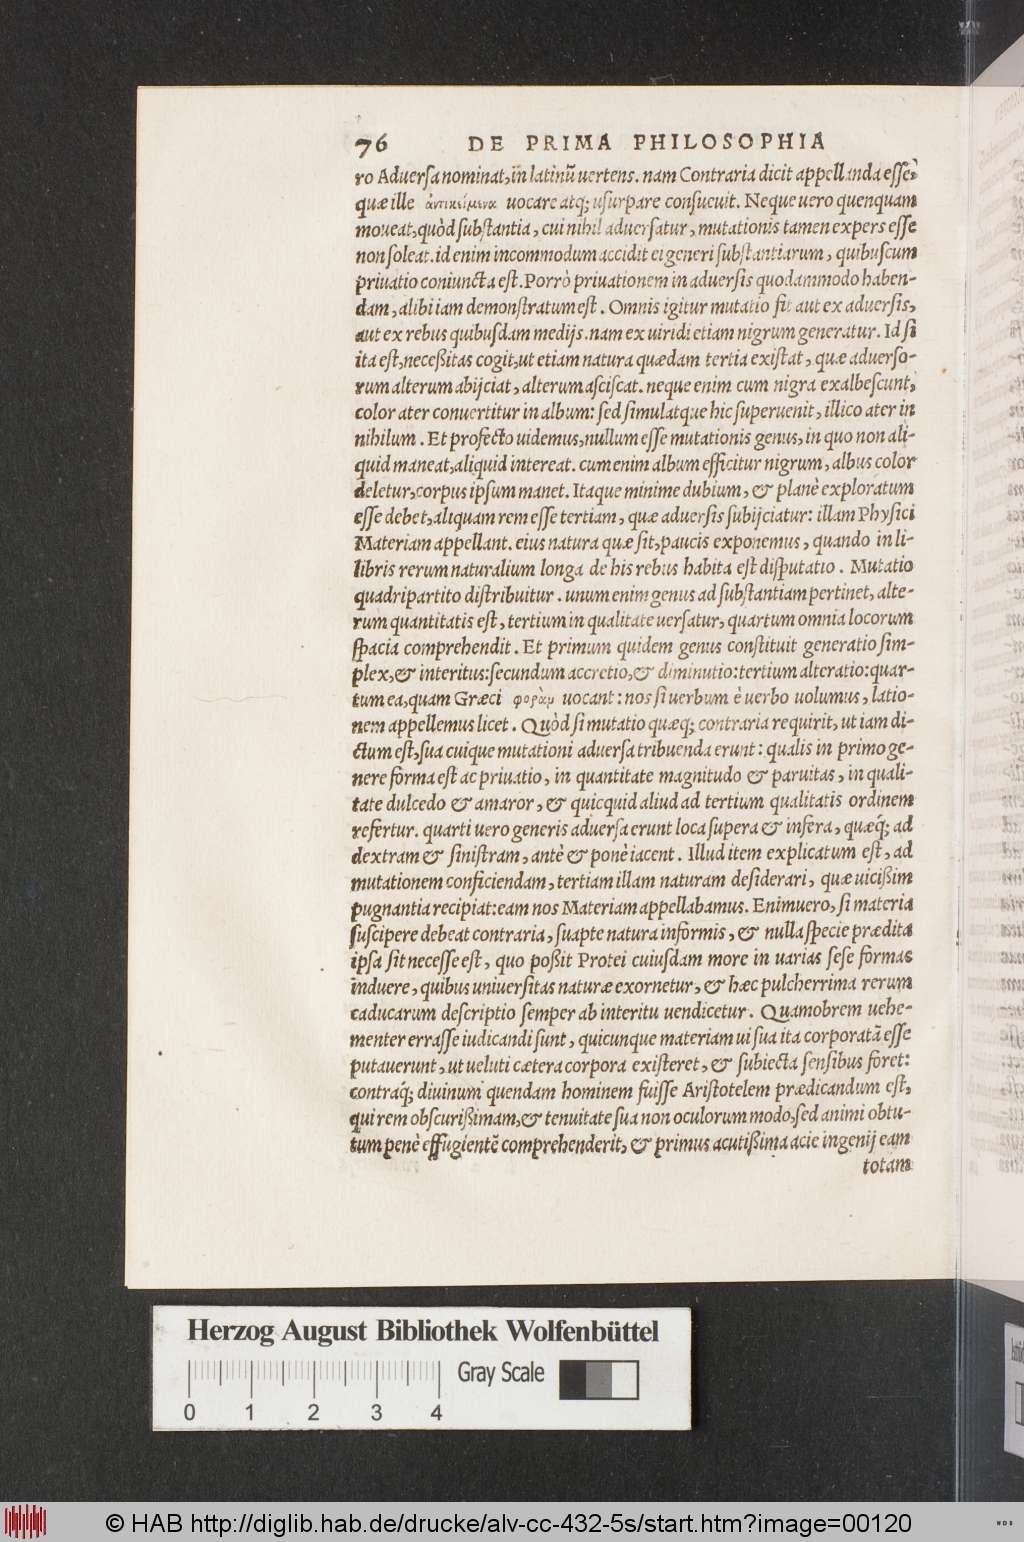 76 DE PRIMA PHILOSOPHIA
ro Aduersa nominat, in latinũ uertens. nam Contraria dicit appellanda esse,
quæ ille ἀντικείμενα uocare atq; usurpare consueuit. Neque uero quenquam
moueat, quòd substantia, cui nihil aduersatur, mutationis tamen expers esse
non soleat. id enim incommodum accidit ei generi substantiarum, quibuscum
priuatio coniuncta est. Porrò priuationem in aduersis quodammodo haben-
dam, alibi iam demonstratum est. Omnis igitur mutatio fit aut ex aduersis,
aut ex rebus quibusdam medijs. nam ex uiridi etiam nigrum generatur. Id si
ita est, neceßitas cogit, ut etiam natura quædam tertia existat, quæ aduerso-
rum alterum abijciat, alterum asciscat. neque enim cum nigra exalbescunt,
color ater conuertitur in album: sed simulatque hic superuenit, illico ater in
nihilum. Et profecto uidemus, nullum esse mutationis genus, in quo non ali-
quid maneat, aliquid intereat. cum enim album efficitur nigrum, albus color
deletur, corpus ipsum manet. Itaque minime dubium, & planè exploratum
esse debet, aliquam rem esse tertiam, quæ aduersis subijciatur: illam Physici
Materiam appellant. eius natura quæ sit, paucis exponemus, quando in li-
libris rerum naturalium longa de his rebus habita est disputatio. Mutatio
quadripartito distribuitur. unum enim genus ad substantiam pertinet, alte-
rum quantitatis est, tertium in qualitate uersatur, quartum omnia locorum
spacia comprehendit. Et primum quidem genus constituit generatio sim-
plex, & interitus: secundum accretio, & diminutio: tertium alteratio: quar-
tum ea, quam Græci φορὰμ uocant: nos si uerbum è uerbo uolumus, latio-
nem appellemus licet. Quòd si mutatio quæq; contraria requirit, ut iam di-
ctum est, sua cuique mutationi aduersa tribuenda erunt: qualis in primo ge-
nere forma est ac priuatio, in quantitate magnitudo & paruitas, in quali-
tate dulcedo & amaror, & quicquid aliud ad tertium qualitatis ordinem
refertur. quarti uero generis aduersa erunt loca supera & infera, quæq́; ad
dextram & sinistram, antè & ponè iacent. Illud item explicatum est, ad
mutationem conficiendam, tertiam illam naturam desiderari, quæ uicißim
pugnantia recipiat: eam nos Materiam appellabamus. Enimuero, si materia
suscipere debeat contraria, suapte natura informis, & nulla specie prædita
ipsa sit necesse est, quo poßit Protei cuiusdam more in uarias sese formas
induere, quibus uniuersitas naturæ exornetur, & hæc pulcherrima rerum
caducarum descriptio semper ab interitu uendicetur. Quamobrem uehe-
menter errasse iudicandi sunt, quicunque materiam ui sua ita corporatã esse
putauerunt, ut ueluti cætera corpora existeret, & subiecta sensibus foret:
contraq́; diuinum quendam hominem fuisse Aristotelem prædicandum est,
qui rem obscurißimam, & tenuitate sua non oculorum modo, sed animi obtu-
tum penè effugientẽ comprehenderit, & primus acutißima acie ingenij eam
totam
Herzog August Bibliothek Wolfenbüttel
Gray Scale
0 1 2 3 4
© HAB http://diglib.hab.de/drucke/alv-cc-432-5s/start.htm?image=00120